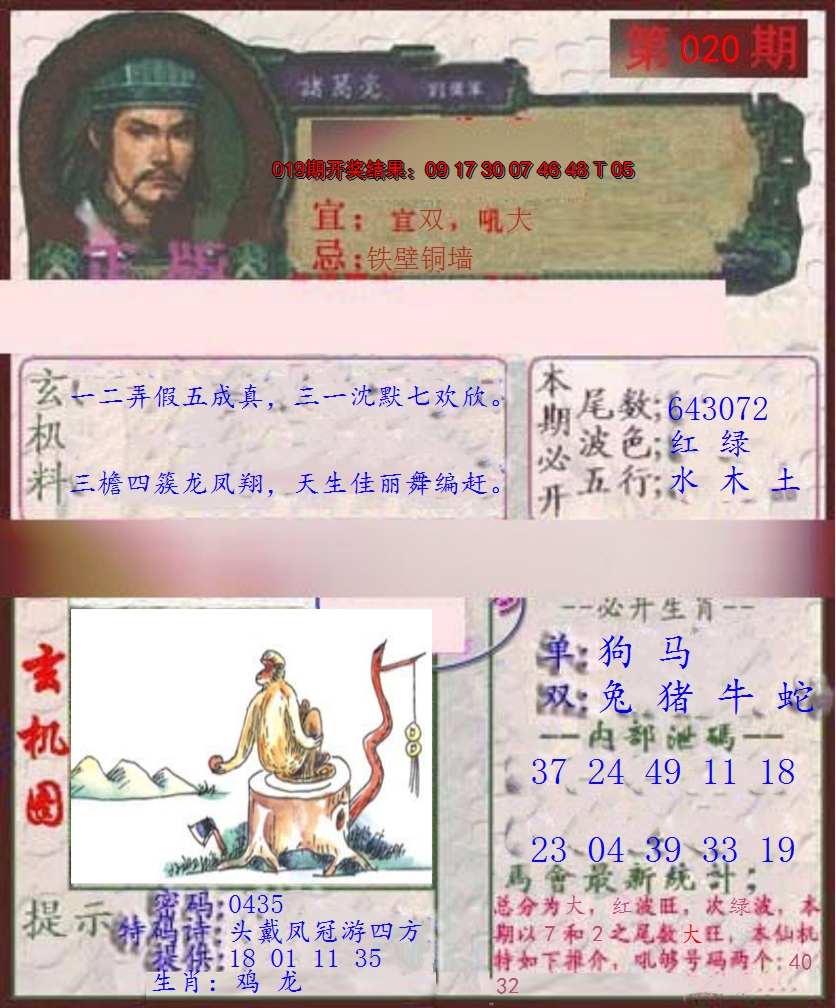 第 020 期
諸葛亮
019期开奖结果：09 17 30 07 46 48 T 05
宜：宜双，吼大
忌：铁壁铜墙
正版
玄机料
一二弄假五成真，三一沈默七欢欣。
三檐四簇龙凤翔，天生佳丽舞编赶。
本期必开
尾数；643072
波色；红 绿
五行；水 木 土
--必开生肖--
单：狗 马
双：兔 猪 牛 蛇
--内部泄碼--
37 24 49 11 18
23 04 39 33 19
馬會最新統計；
总分为大，红波旺，次绿波，本
期以7和2之尾数大旺，本仙机
特如下推介，吼够号码两个：40
32
玄机图
提示
密码：0435
特码诗：头戴凤冠游四方
提供：18 01 11 35
生肖：鸡 龙